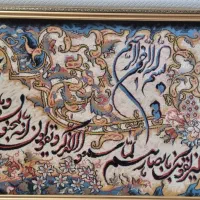 بسم الله الرحمن الرحیم
لیزلقونک بابصارهم لما سمعوا الذکر و یقولون انه لمجنون